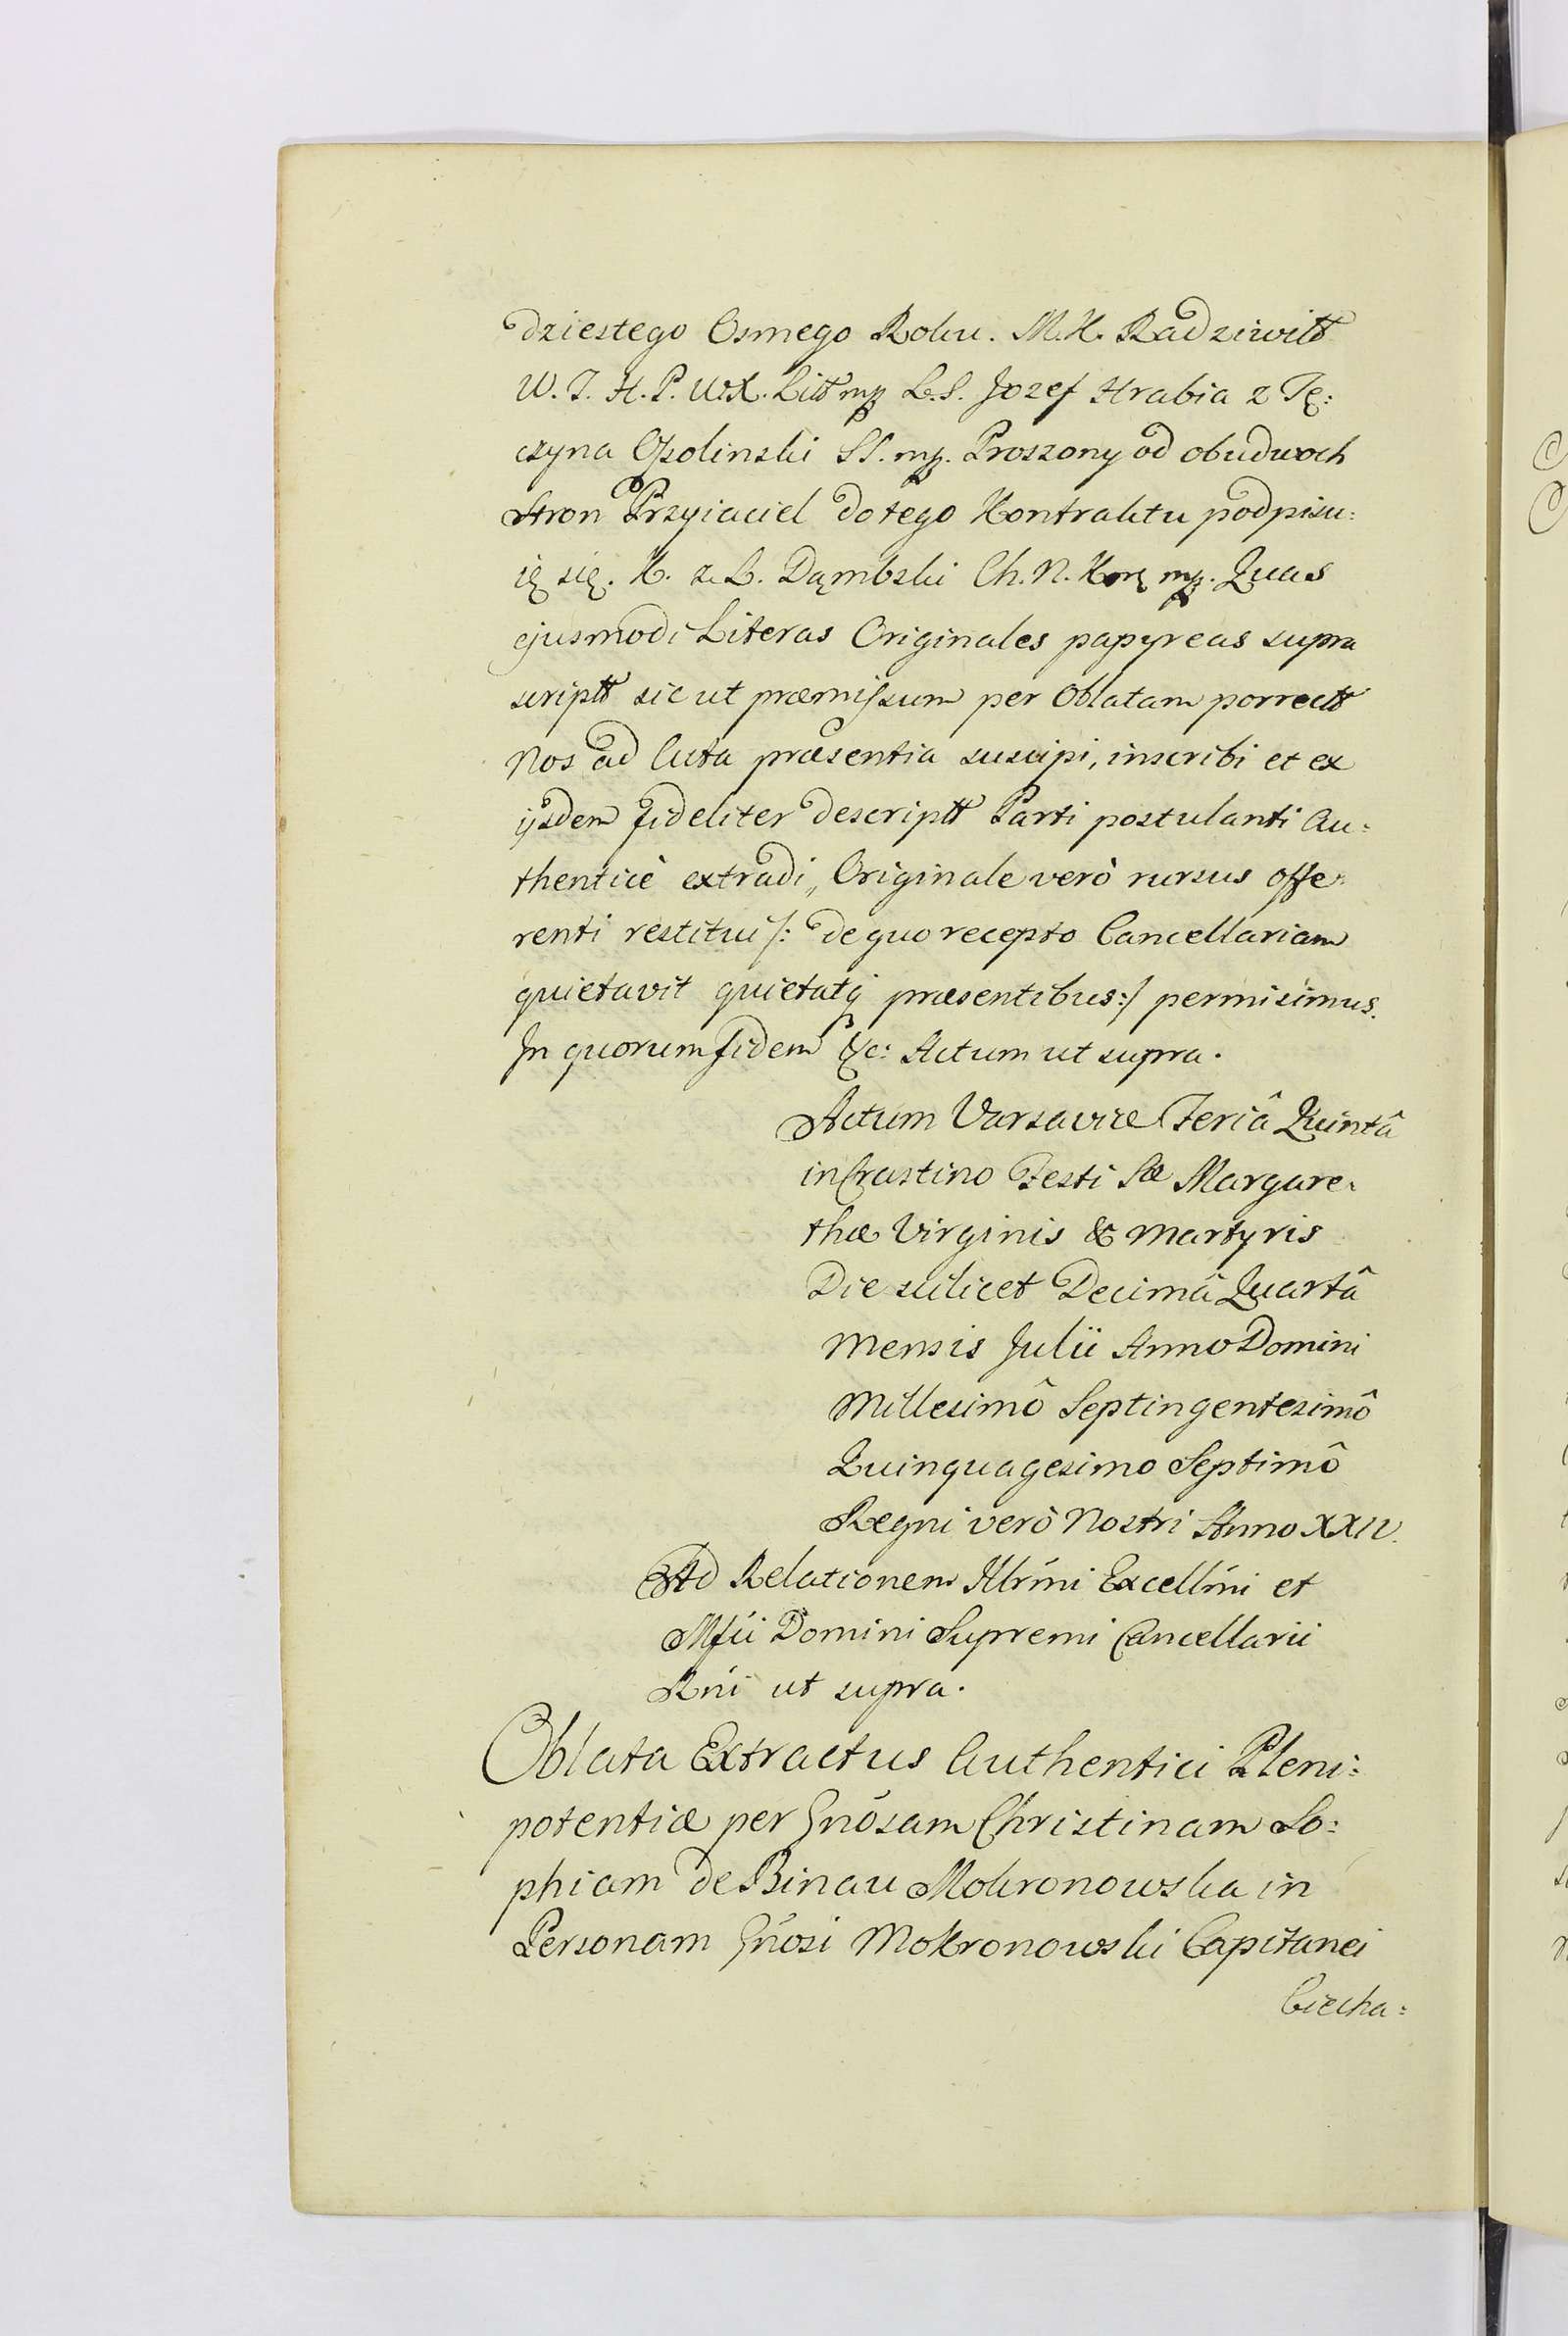 dziestego Osmego Roku. M. K. Radziwiłł
W. J. H. P. W.X. Litt mp L.S. Jozef Hrabia z Tę:
czyna Ossolinski SS. mp. Proszony od obudwoch
Stron Przyiaciel do tego Kontraktu podpisu:
ię się. K. z L. Dąmbski Ch. N. Kor mp. Quas
ejusmodi Literas Originales papyreas supra
scriptt sic ut præmissum per Oblatam porrectt
Nos ad Acta præsentia suscipi, inscribi et ex
ijsdem fideliter descriptt Parti postulanti Au:
thenticè extradi, Originale verò rursus offe:
renti restitui /: de quo recepto Cancellariam
quietavit quietatq præsentibus :/ permisimus.
In quorum fidem &c: Actum ut supra.
Actum Varsaviæ Feriâ Quintâ
in Crastino Festi Sæ Margare:
thæ Virginis & Martyris
Die scilicet Decimâ Quartâ
Mensis Julii Anno Domini
Millesimô Septingentesimô
Quinquagesimo Septimô
Regni verò Nostri Anno XXIV.
Ad Relationem Illrmi Excellmi et
Mfci Domini Supremi Cancellarii
Rni ut supra.
Oblata Extractus Authentici Pleni:
potentiæ per Gnosam Christinam So:
phiam de Binau Mokronowska in
Personam Gnosi Mokronowski Capitanei
Ciecha: